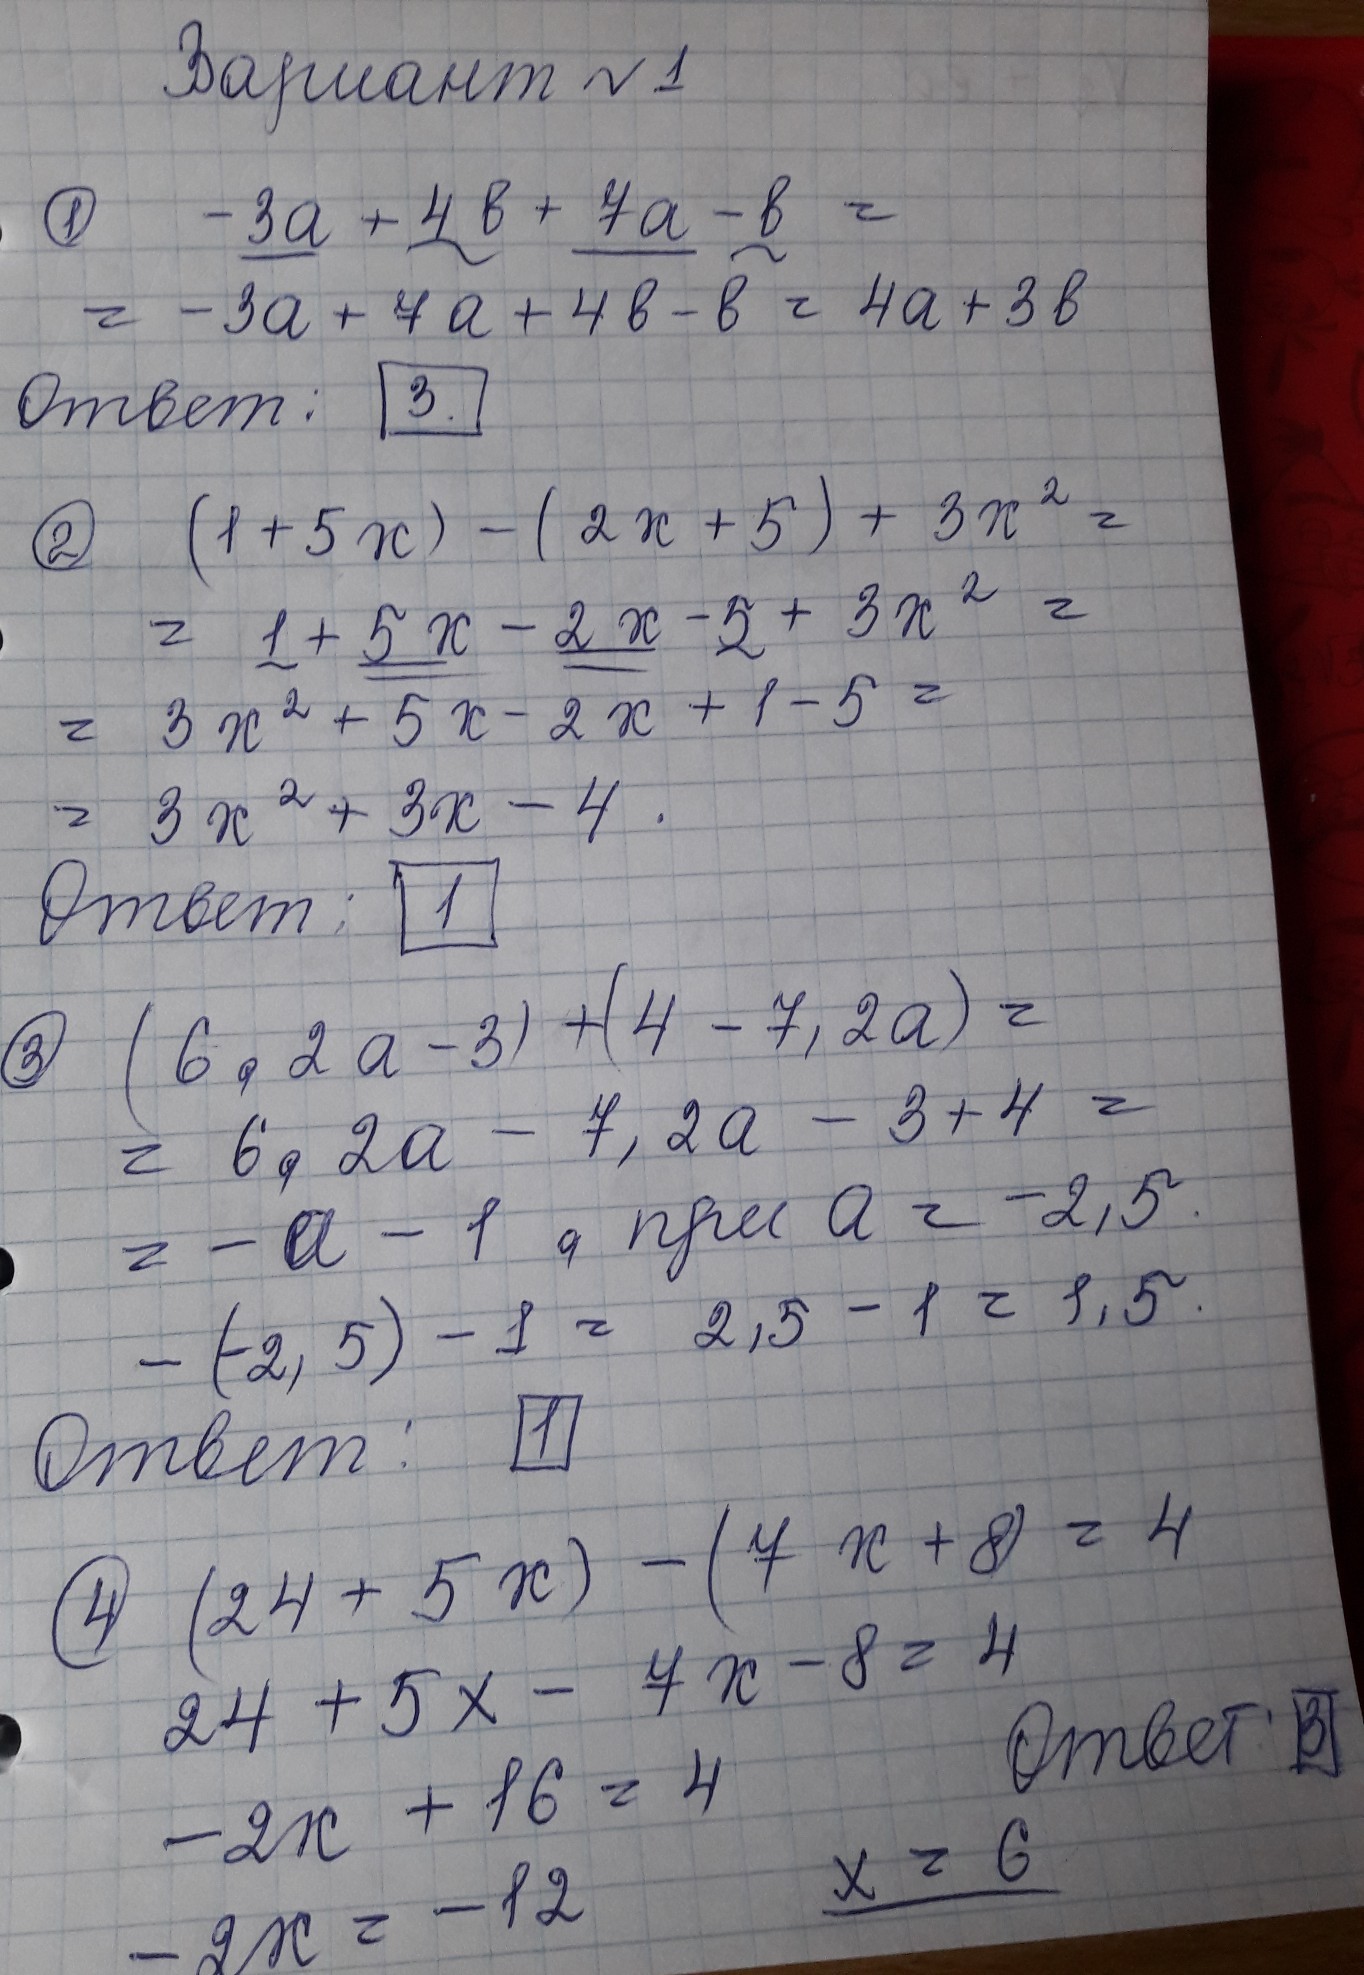 Вариант №1
① -3a + 4b + 7a - b =
= -3a + 7a + 4b - b = 4a + 3b
Ответ: 3.
② (1 + 5x) - (2x + 5) + 3x² =
= 1 + 5x - 2x - 5 + 3x² =
= 3x² + 5x - 2x + 1 - 5 =
= 3x² + 3x - 4.
Ответ: 1
③ (6,2a - 3) + (4 - 7,2a) =
= 6,2a - 7,2a - 3 + 4 =
= -a - 1, при a = -2,5.
-(-2,5) - 1 = 2,5 - 1 = 1,5.
Ответ: 1
④ (24 + 5x) - (7x + 8) = 4
24 + 5x - 7x - 8 = 4
-2x + 16 = 4
-2x = -12
x = 6
Ответ: 3